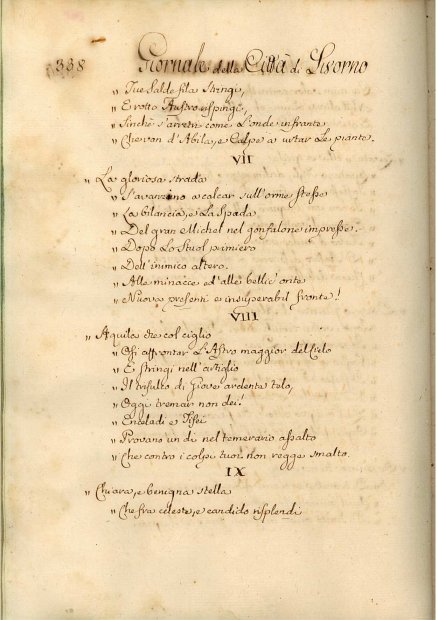 338 Giornale della Città di Livorno
" Tue salde fila stringi,
" E rotto Austro rispingi,
" Sinchè s'arretri come l'onde infrante
" Che van d'Abila, e Calpe a urtar le piante.
VII
" La gloriosa strada
" S'avanzino a calcar sull'orme stesse
" La bilancia, e la spada
" Del gran Michel nel gonfalone impresse.
" Dopo lo stuol primiero
" Dell'inimico altero.
" Alle minacce ed all'ei bellic'onte
" Nuova presenti e insuperabil fronte!
VIII
" Aquila che col ciglio
" Osi affrontar l'Astro maggior del Cielo
" E stringi nell'artiglio
" Il trisulto di Giove ardente telo,
" Oggi tremar non dei!
" Enceladi e Tifei
" Provano un dì nel temerario assalto
" Che contro i colpi tuoi non regge smalto.
IX
" Chiara, e benigna stella
" Che fra celeste, e candido risplendi